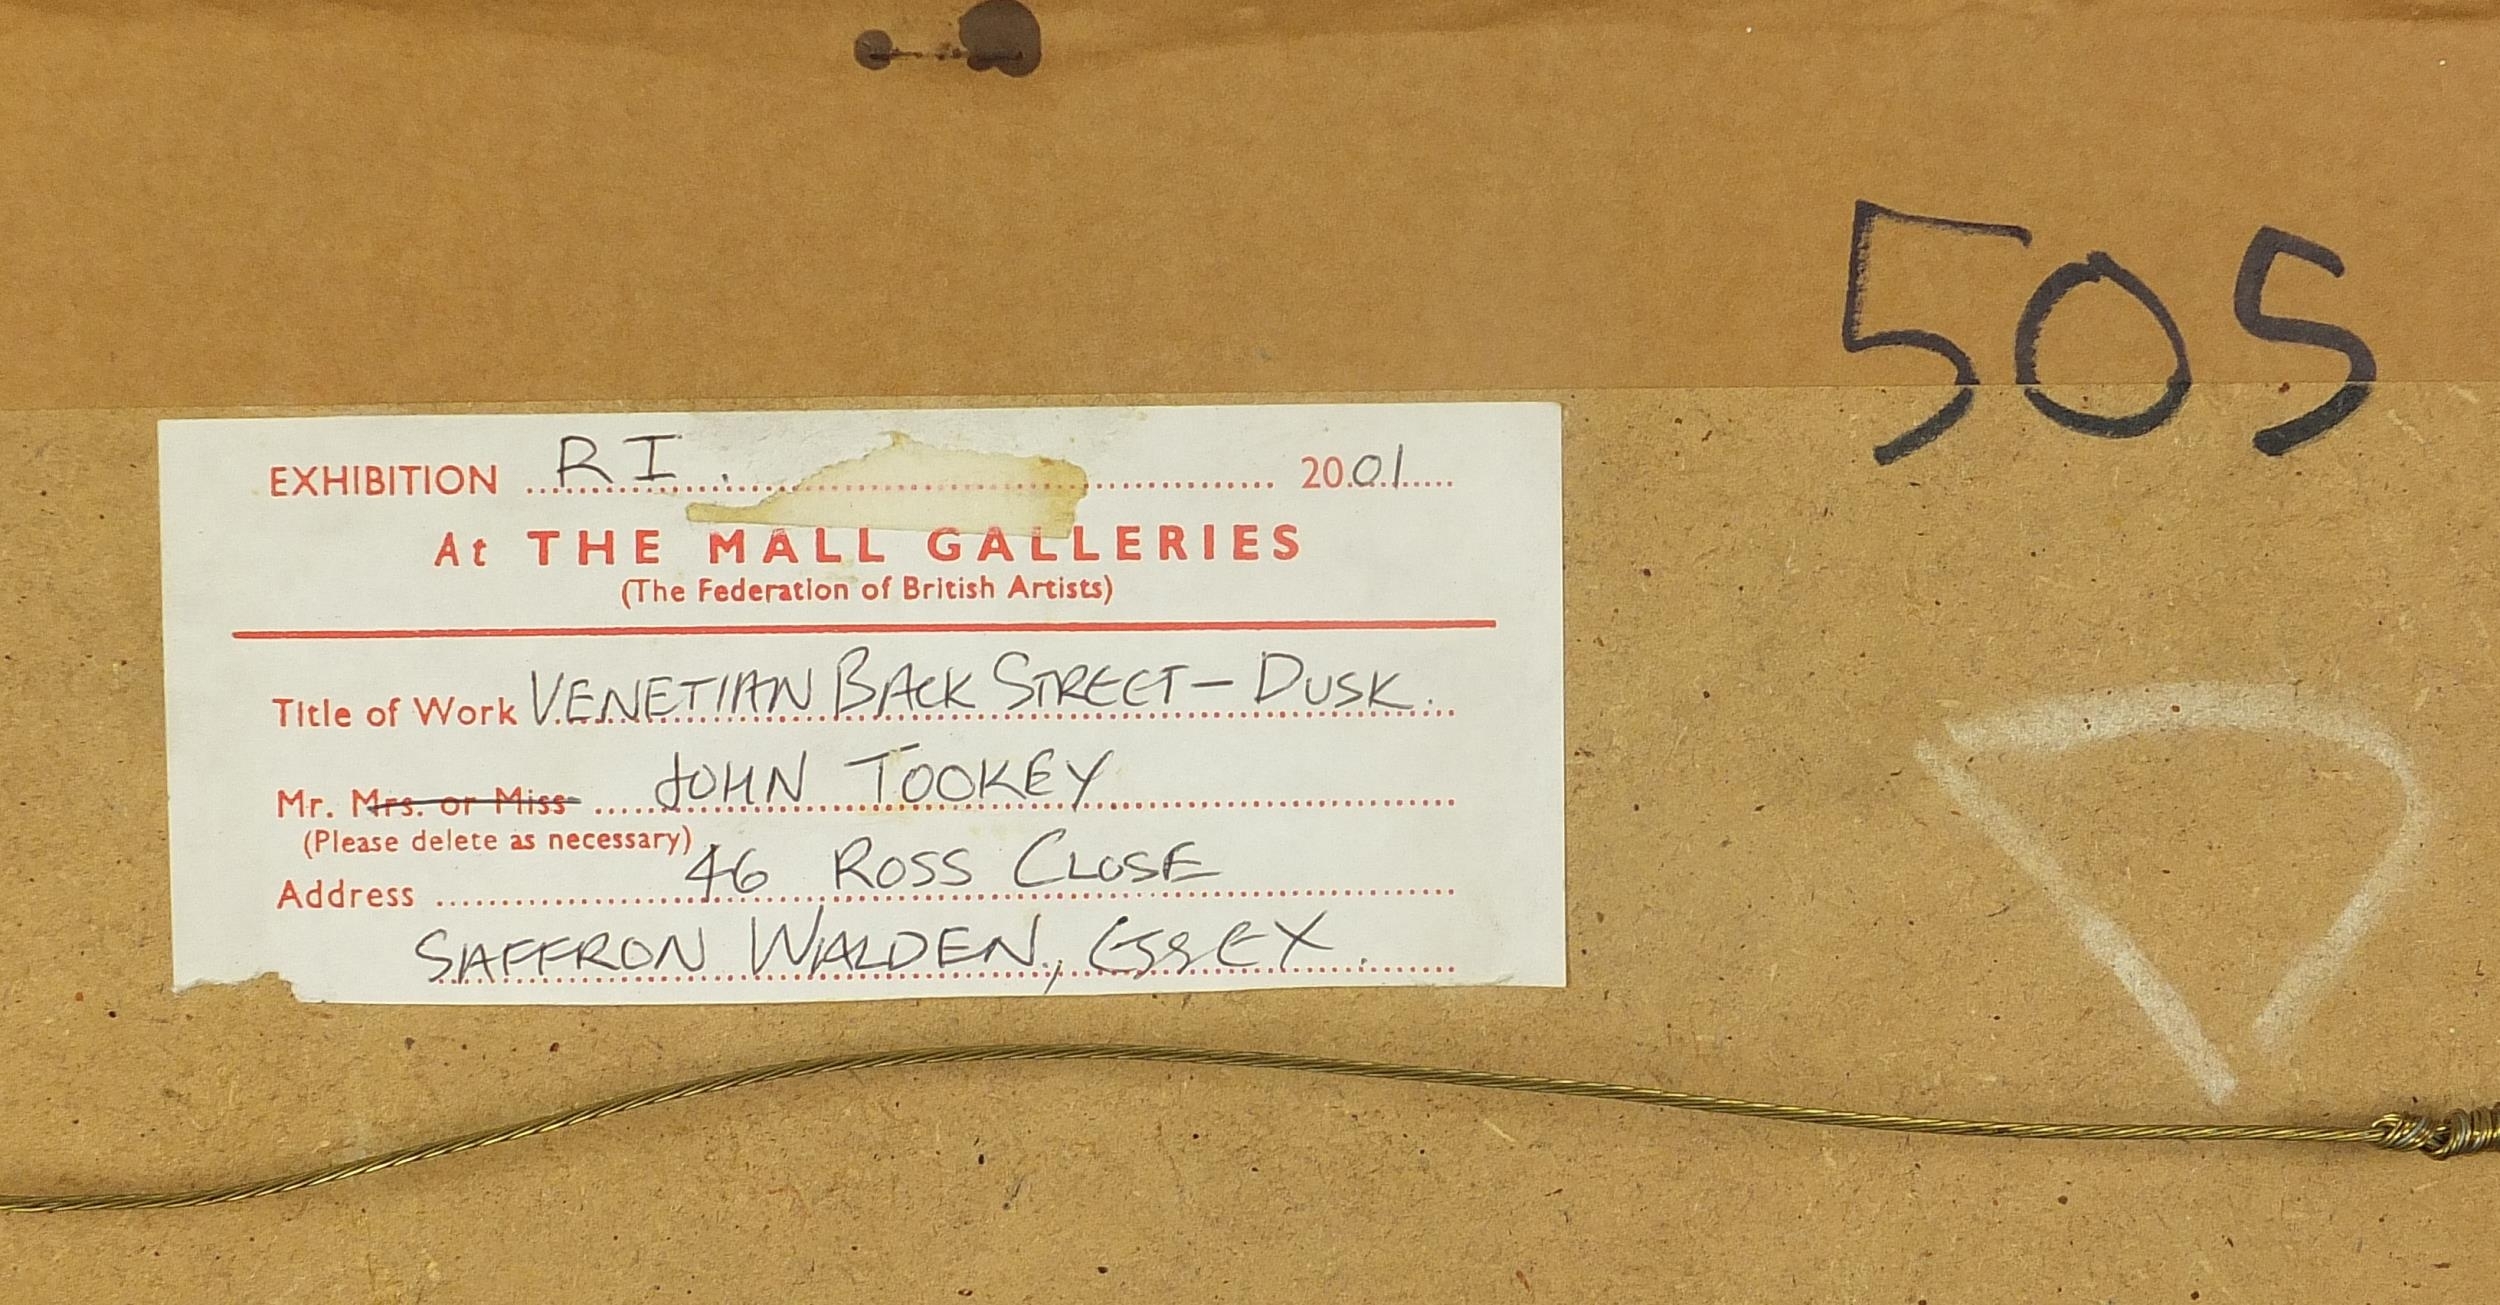 505
EXHIBITION RI. 2001
At THE MALL GALLERIES
(The Federation of British Artists)
Title of Work VENETIAN BACK STREET - DUSK.
Mr. Mrs. or Miss JOHN TOOKEY
(Please delete as necessary)
Address 46 ROSS CLOSE
SAFFRON WALDEN, ESSEX.